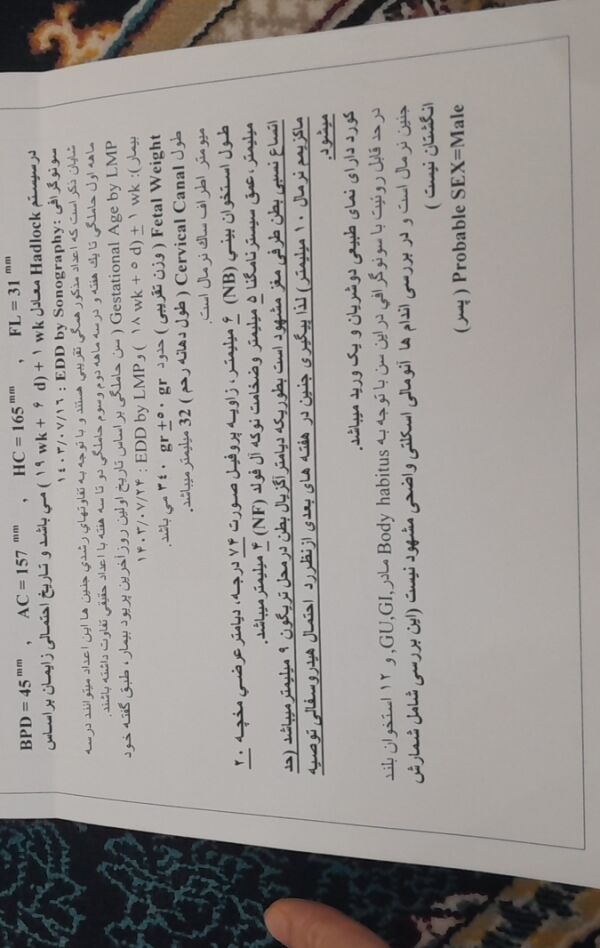 BPD = 45 mm , AC = 157 mm , HC = 165 mm , FL = 31 mm
درسیستم Hadlock معادل ۱ wk + (۱۹ wk + ۶ d) می باشد و تاریخ احتمالی زایمان براساس
سونوگرافی: EDD by Sonography : ۱۴۰۳/۰۷/۱۶
شایان ذکر است که اعداد مذکور همگی تقریبی هستند و با توجه به تفاوتهای رشدی جنین ها این اعداد میتوانند درسه
ماهه اول حاملگی تا یک هفته و درسه ماهه دوم وسوم حاملگی دو تا سه هفته با اعداد حقیقی تفاوت داشته باشند.
Gestational Age by LMP ( سن حاملگی براساس تاریخ اولین روز آخرین پریود بیمار، طبق گفته خود
بیمار): ۱ wk ± (۱۸ wk + ۵ d) و EDD by LMP : ۱۴۰۳/۰۷/۲۴
Fetal Weight ( وزن تقریبی ) حدود ۳۴۰ gr ±۵۰ gr می باشد.
طول Cervical Canal ( طول دهانه رحم ) 32 میلیمتر میباشد.
میومتر اطراف ساک نرمال است.
طول استخوان بینی (NB) ۶ میلیمتر، زاویه پروفیل صورت ۷۴ درجه، دیامتر عرضی مخچه ۲۰
میلیمتر، عمق سیسترنامگنا ۵ میلیمتر وضخامت نوکه آل فولد (NF) ۴ میلیمتر میباشد.
اتساع نسبی بطن طرفی مغز مشهود است بطوریکه دیامتر آگزیال بطن درمحل تریگون ۹ میلیمترمیباشد (حد
ماکزیمم نرمال ۱۰ میلیمتر) لذا پیگیری جنین در هفته های بعدی ازنظررد احتمال هیدروسفالی توصیه
میشود.
کورد دارای نمای طبیعی دوشریان و یک ورید میباشد.
درحد قابل رویت با سونوگرافی در این سن با توجه به Body habitus مادر GU,GI, و ۱۲ استخوان بلند
جنین نرمال است و در بررسی اندام ها آنومالی اسکلتی واضحی مشهود نیست (این بررسی شامل شمارش
انگشتان نیست )
Probable SEX=Male (پسر)